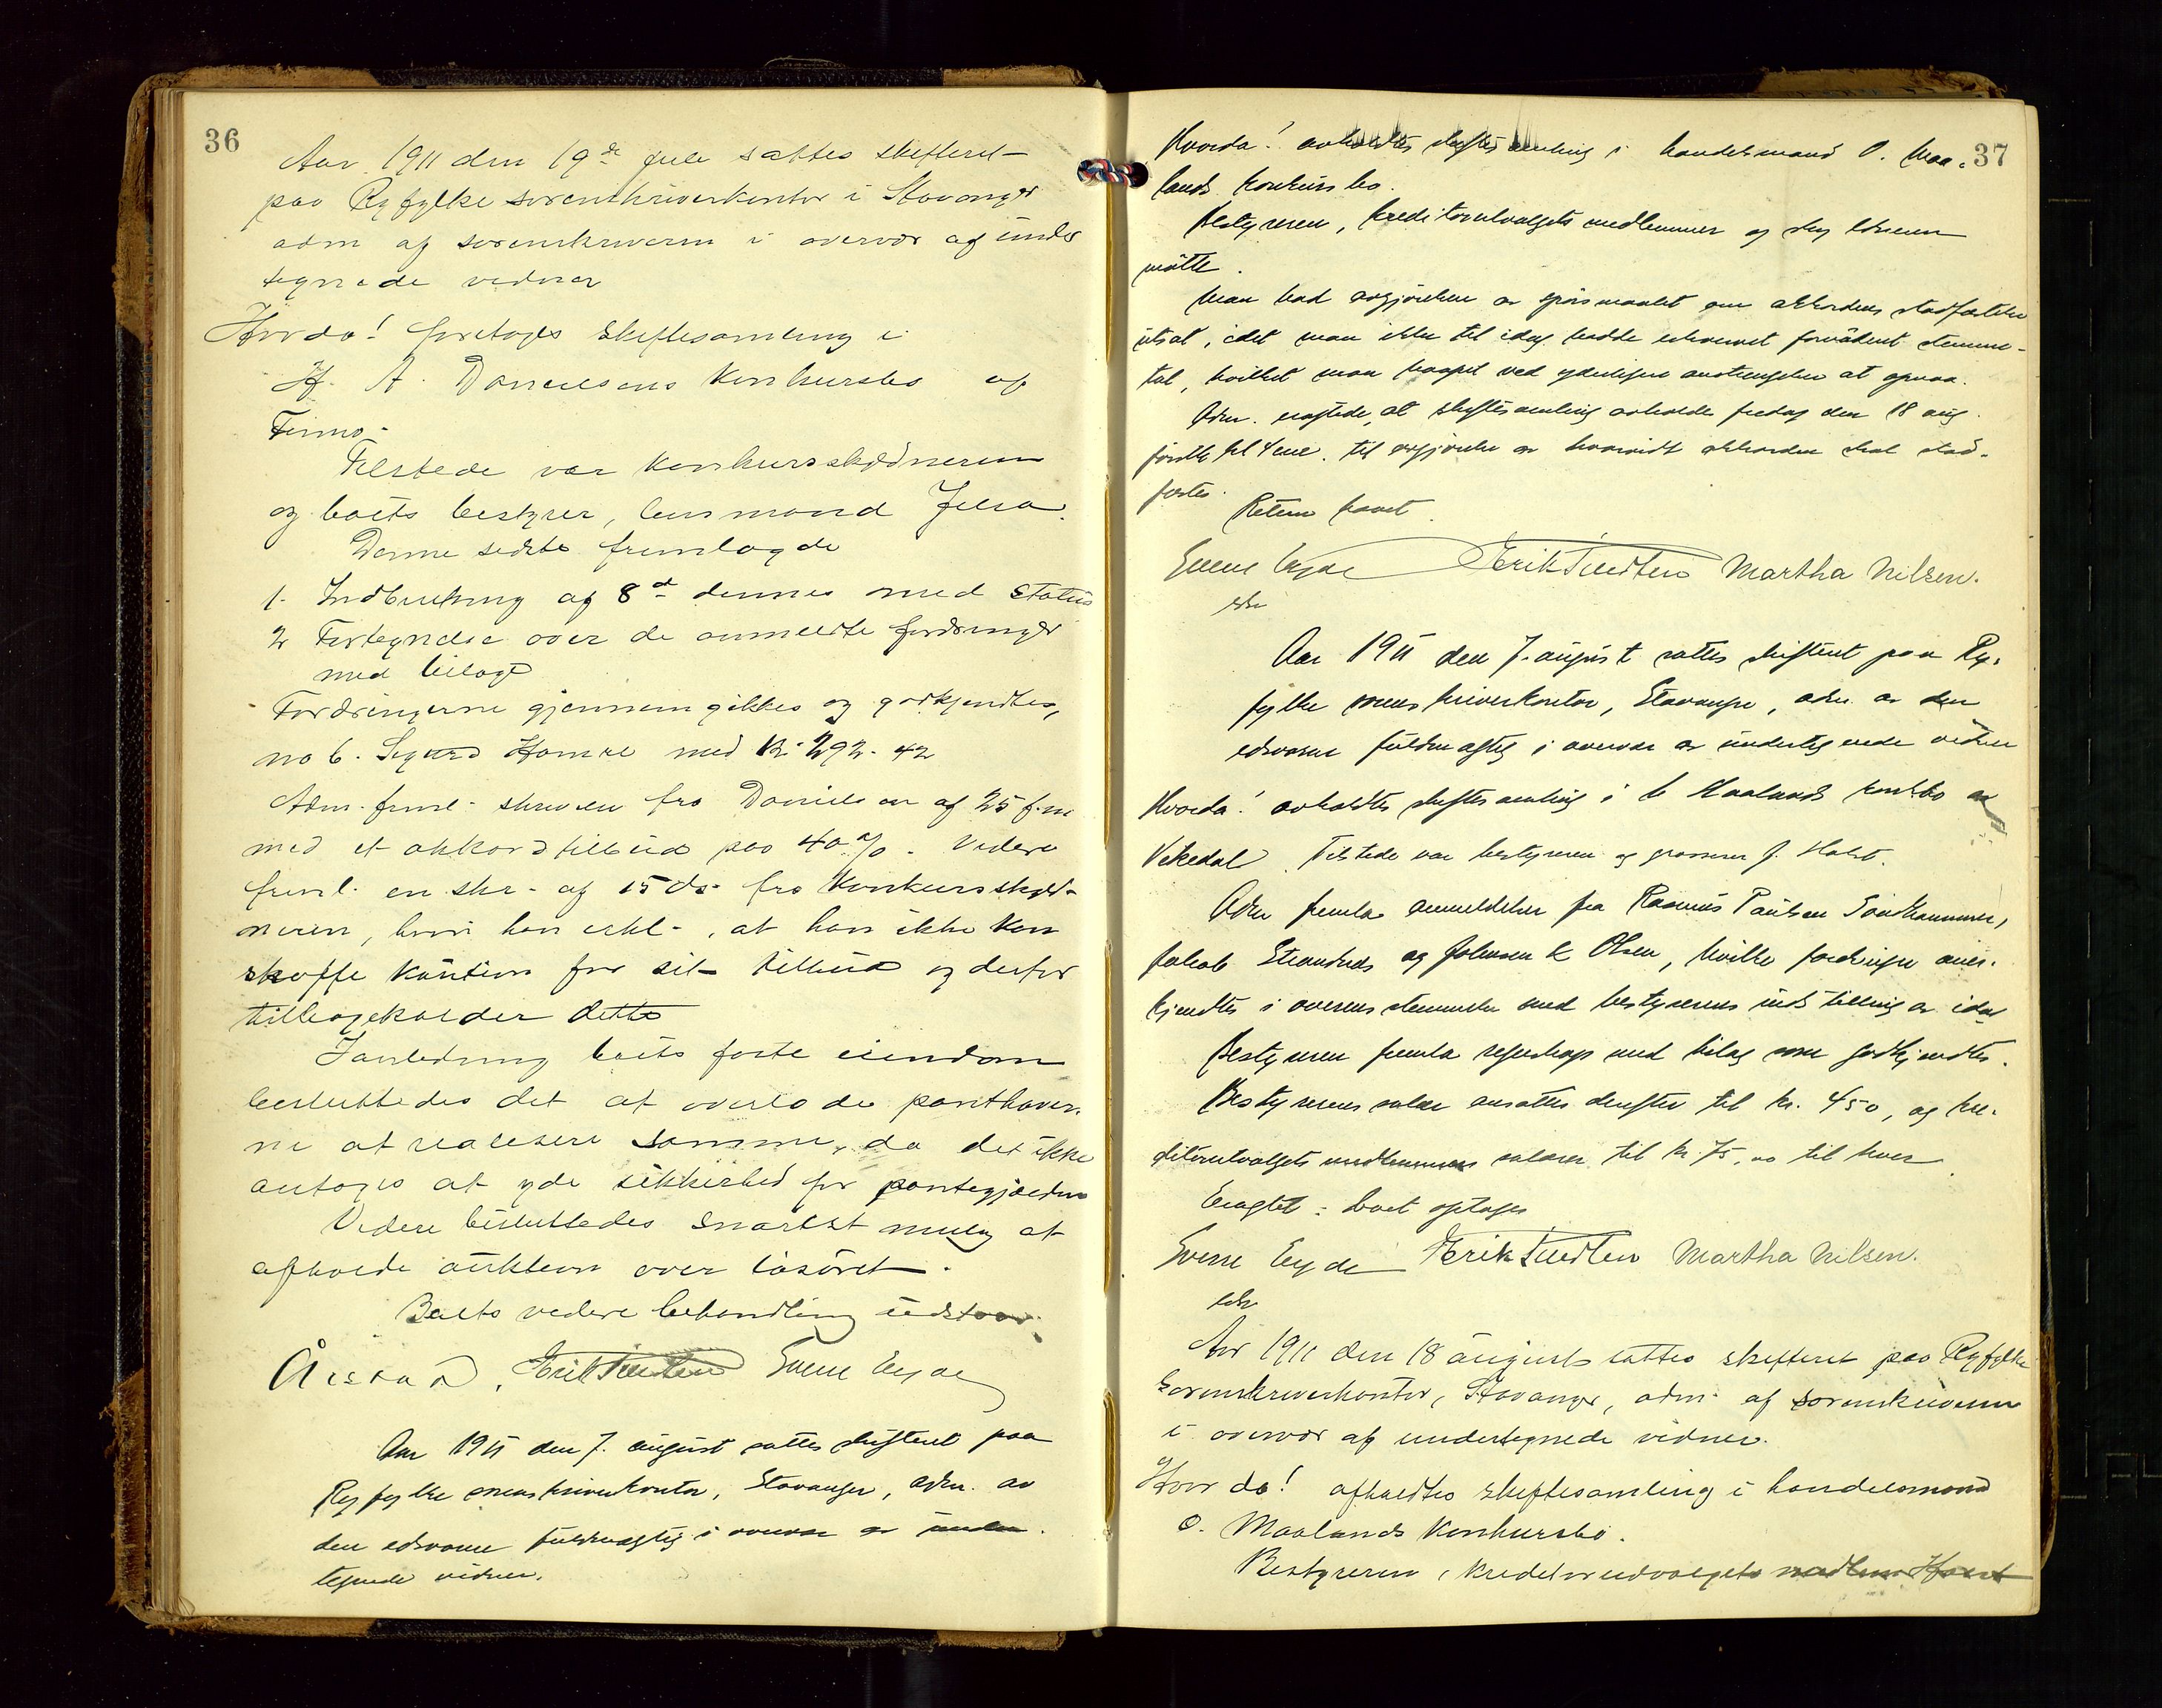 36
Aar 1911 den 19de juli sattes skifteret
paa Ryfylke sorenskriverkontor i Stavanger
adm af sorenskriveren i overvær af under
tegnede vidner
Hvorda! foretoges skiftesamling i
H. A. Danielsens konkursbo af
Tilstede var konkursskyldneren
og boets bestyrer, lensmand Jelsa.
Denne sidste fremlagde
1. Indberetning af 8de dennes med status
2 Fortegnelse over de anmeldte fordringer
med bilage
Fordringerne gjennemgikkes og godkjendtes,
no 6. Sigurd Hamre med Kr 292.42
Adm. freml. skrivelse fra Danielsen af 25 f.m
med et akkordtilbud paa 40 %. Videre
freml. en skr. af 15 ds. fra konkursskyld-
neren, hvori han erkl., at han ikke kan
skaffe kaution for sit tilbud og derfor
tilbagekalder dette
I anledning boets faste eiendom
besluttedes det at overlade panthaver-
ne at realisere samme, da det ikke
antages at yde sikkerhed for pantegjælden
Videre besluttedes snarest mulig at
afholde auktion over løsøret.
Boets videre behandling udstaar.
Årstad, Erik Tuedten Svein Eyde
Aar 1911 den 7. august sattes skifteret paa
Ryfylke sorenskriverkontor, Stavanger, adm. av
den edsvorne fuldmægtig i overvær av under-
tegnede vidner.
37
Hvorda! avholdtes skiftesamling i handelsmand O. Maa-
lands konkursbo.
Bestyreren, kreditorutvalgets medlemmer og skyldneren
møtte.
Man bad avgjørelsen av spørsmaalet om akkordens stadfæstelse
utsat, idet man ikke til idag hadde erhvervet fornødent stemme-
tal, hvilket man haapet ved yderligere anstrengelser at opnaa.
Adm. eragtede, at skiftesamling avholdes fredag den 18 aug.
førstk. kl 4 em. til avgjørelse av hvorvidt akkorden skal stad-
fæstes.
Retten hævet.
Svein Eyde Erik Tuedten Martha Nilsen.
edsv
Aar 1911 den 7. august sattes skifteret paa Ry-
fylke sorenskriverkontor, Stavanger, adm. av den
edsvorne fuldmægtig i overvær av undertegnede vidner
Hvorda! avholdtes skiftesamling i Maalands konkbo av
Vikedal. Tilstede var bestyreren og grosserer J. Holst.
Adm fremla anmeldelser fra Rasmus Paulsen Sandhammer,
Jakob Strandnæs og Johnsen & Olsen, hvilke fordringer aner-
kjendtes i overensstemmelse med bestyrerens indstilling av idag
Bestyreren fremla regnskap med bilag som godkjendtes.
Bestyrerens salær ansattes derefter til kr. 450, og kre-
ditorutvalgets medlemmers salærer til kr. 75,00 til hver
Eragtet: boet optages
Svein Eyde Erik Tuedten Martha Nilsen.
edsv
Aar 1911 den 18 august sattes skifteret paa Ryfylke
sorenskriverkontor, Stavanger, adm. af sorenskriveren
i overvær af undertegnede vidner.
Hvorda! afholdtes skiftesamling i handelsmand
O. Maalands konkursbo.
Bestyreren, kreditorudvalgets medlem Holst